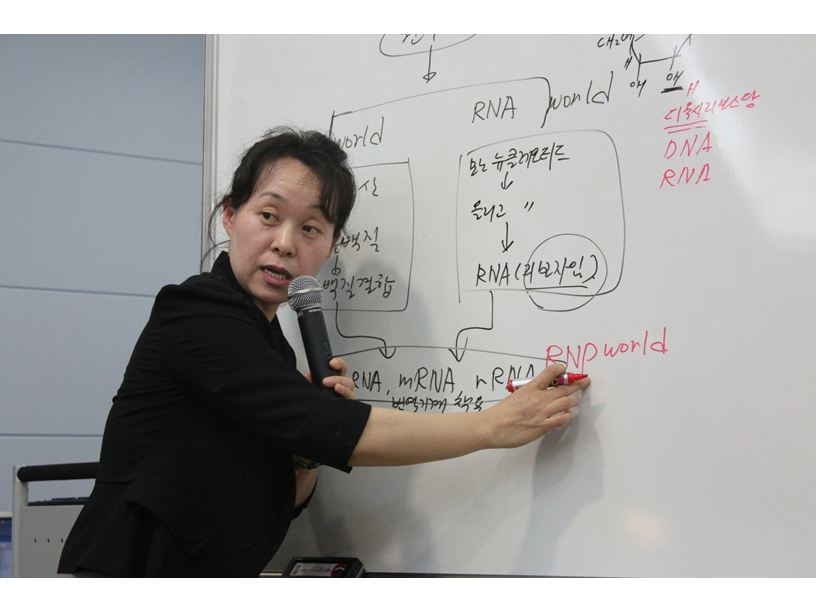 CH₂OH
H
디옥시리보스당
DNA
RNA
world
RNA world
산
백질
백질결합
모노뉴클레오티드
올리고 〃
RNA (리보자임)
RNA, mRNA, rRNA
번역기계 착육
RNP world